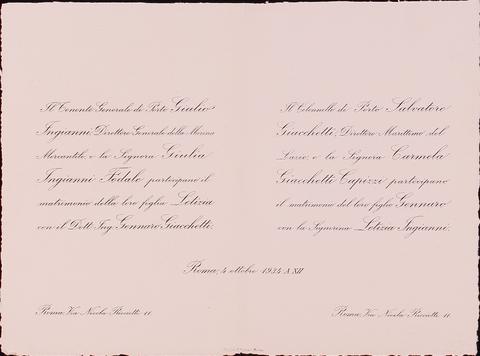 Il Tenente Generale di Porto Giulio
Ingianni, Direttore Generale della Marina
Mercantile, e la Signora Giulia
Ingianni Fedale partecipano il
matrimonio della loro figlia Letizia
con il Dott. Ing. Gennaro Giacchetti.
Il Colonnello di Porto Salvatore
Giacchetti, Direttore Marittimo del
Lazio, e la Signora Carmela
Giacchetti Capizzi partecipano
il matrimonio del loro figlio Gennaro
con la Signorina Letizia Ingianni.
Roma, 4 ottobre 1934 A XII
Roma, Via Nicola Ricciotti 11
Roma, Via Nicola Ricciotti 11